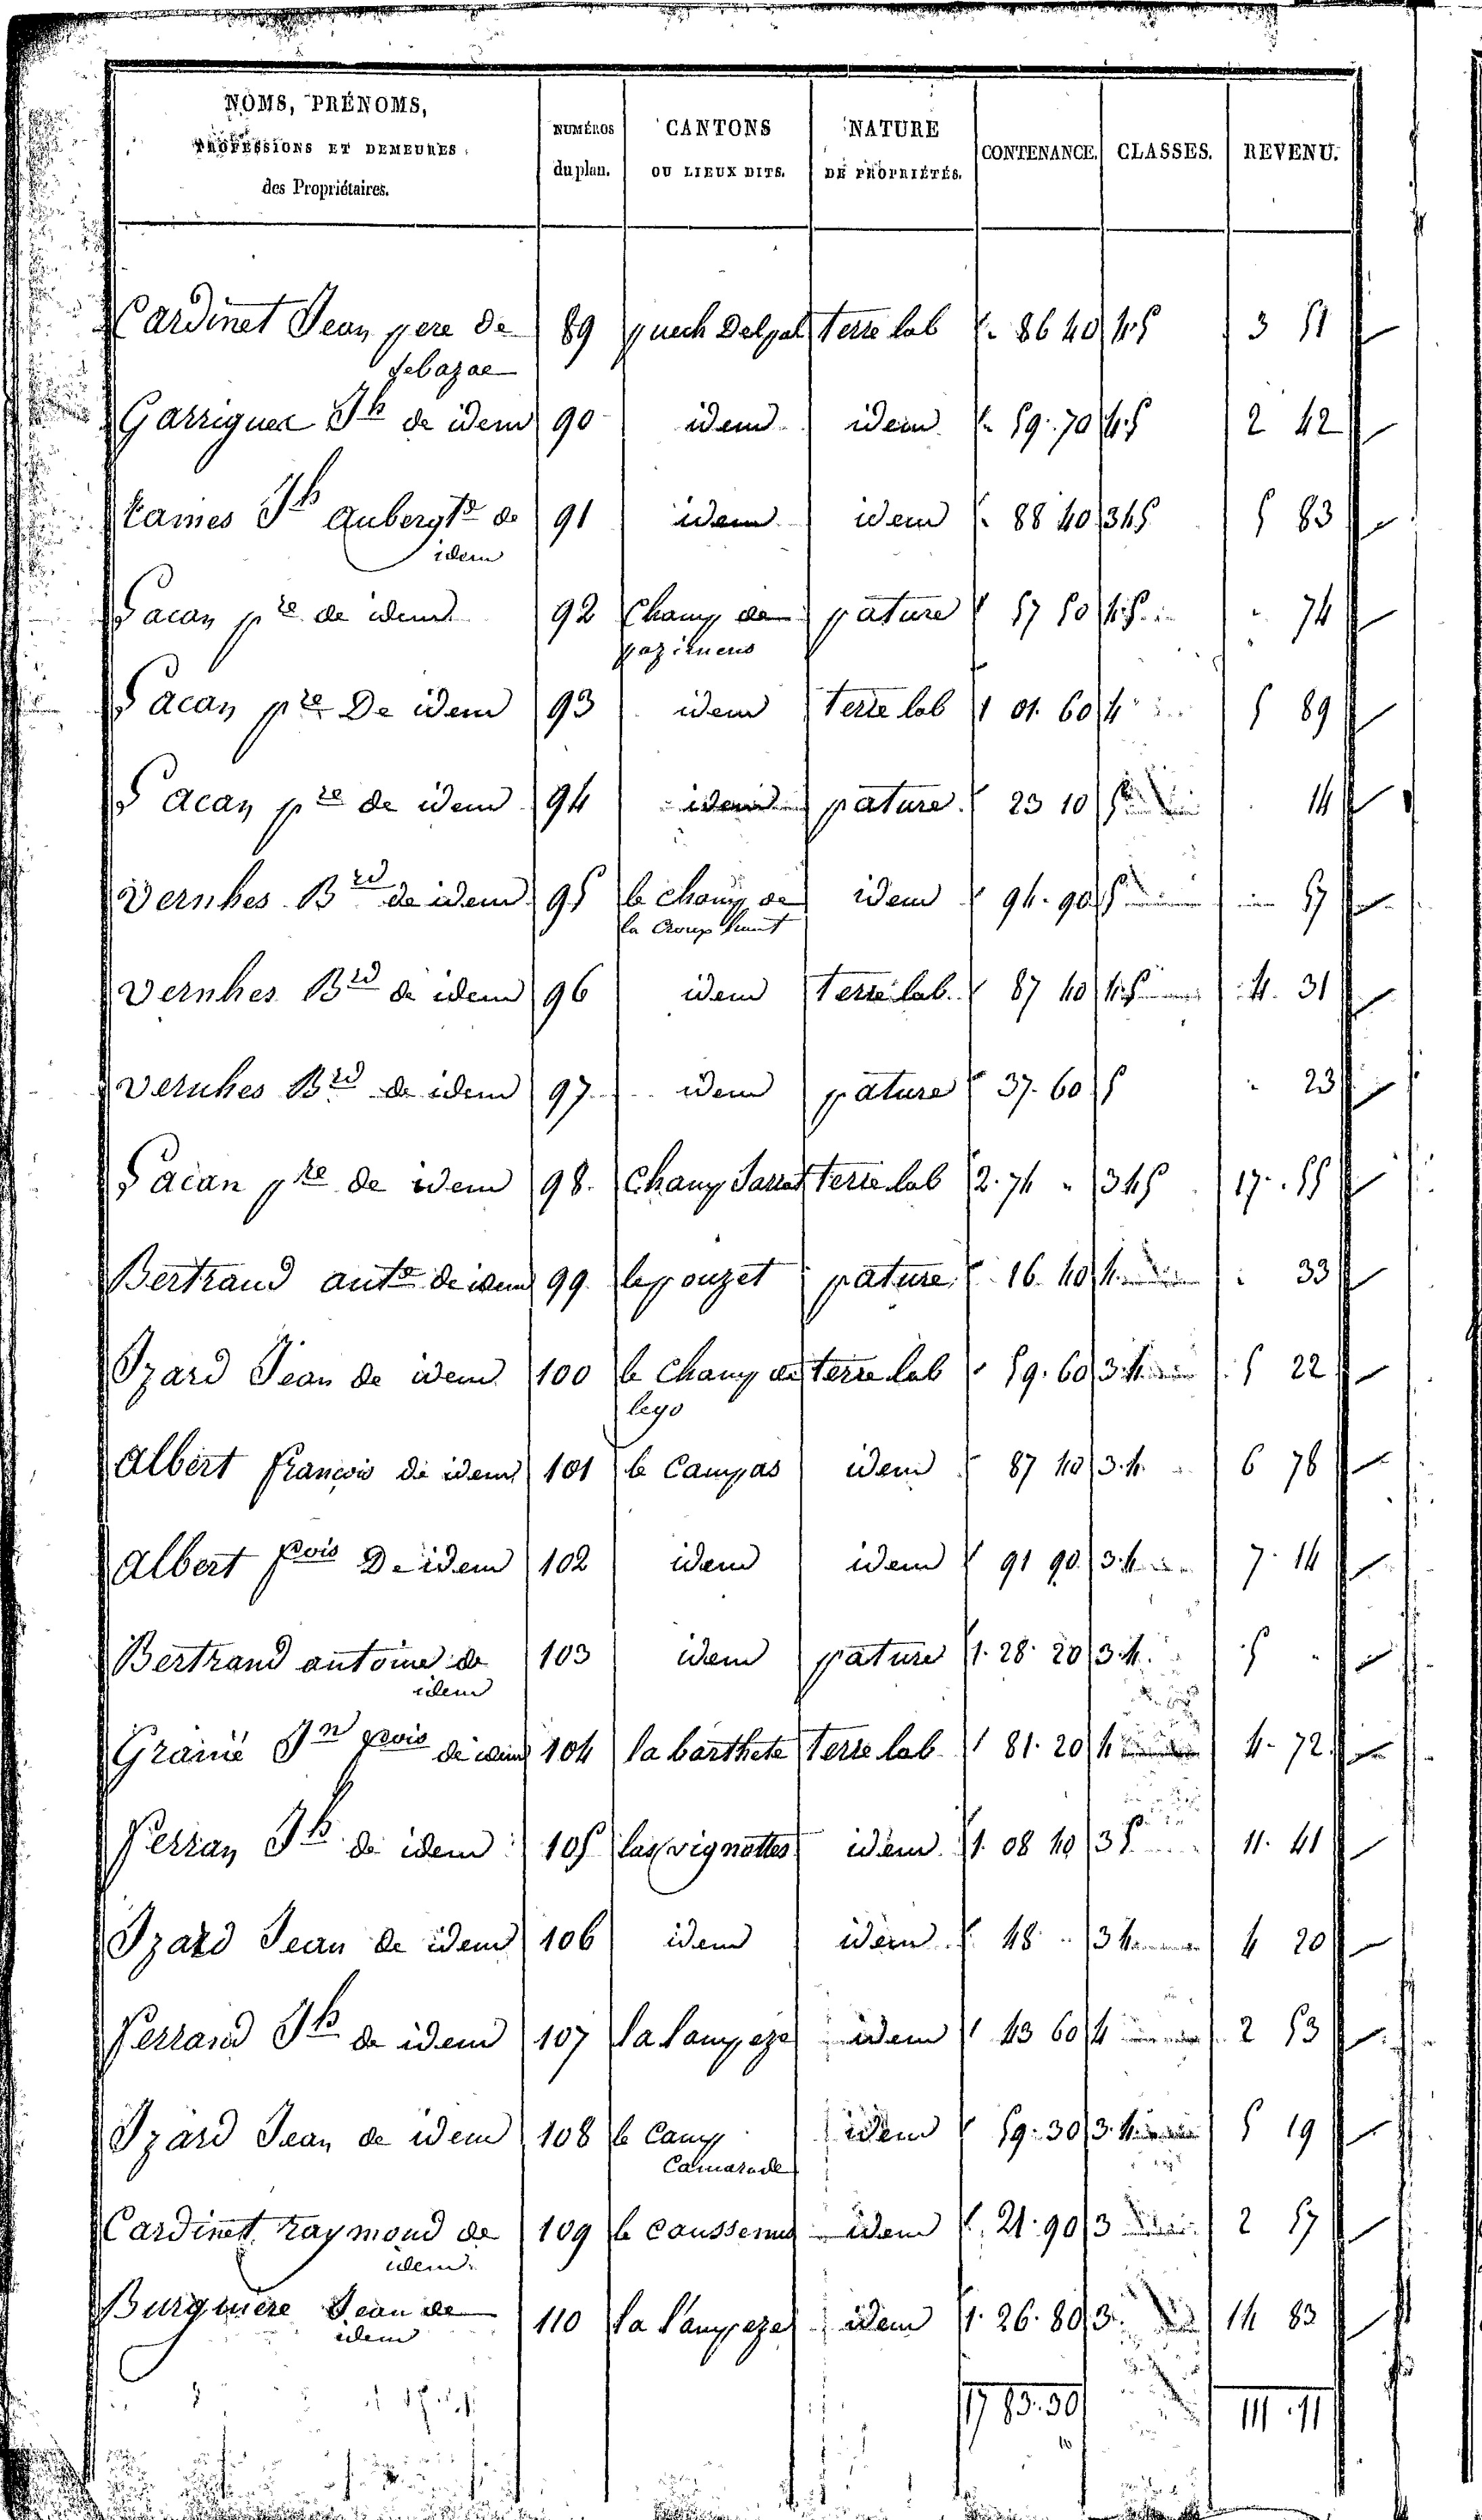 NOMS, PRÉNOMS, PROFESSIONS ET DEMEURES des Propriétaires. | NUMÉROS du plan. | CANTONS OU LIEUX DITS. | NATURE DE PROPRIÉTÉS. | CONTENANCE. | CLASSES. | REVENU.
Cardinet Jean pere de 89 puech Delpal terre lab 86 40 4.5 3 51
sebazac
Garrigues Jh de idem 90 idem idem 59.70 4.5 2 42
Jh aubergte de 91 idem idem 88 40 345 5 83
idem
Sacan pre de idem 92 Champ de pature 57 50 4.5 74
Sacan pre De idem 93 idem terre lab 1 01. 60 4 5 89
Sacan pre de idem 94 idem pature 23 10 5 14
Vernhes Brd de idem 95 le champ de idem 94.90 5 57
la
Vernhes Brd de idem 96 idem terre lab. 87 40 4.5 4. 31
Vernhes Brd de idem 97 idem pature 37.60 5 23
Sacan pre de idem 98. Champ Sarrat terre lab 2.74 " 345 17.55
Bertrand ante de idem 99. le pouzet pature 16.40 4 33
Izard Jean de idem 100 le Champ de terre lab 59.60 3.4 5 22
lego
Albert francois de idem 101 le Campas idem 87 40 3.4. 6 78
Albert fcois De idem 102 idem idem 91 90 3.4 7.14
Bertrand antoine de 103 idem pature 1.28.20 3.4. 5 "
idem
Grainié Jn fcois de idem 104 la barthete terre lab. 81.20 4 4.72
Ferran Jh de idem 105 las vignottes idem 1.08 40 3 5 11.41
Izard Jean de idem 106 idem idem 48 " 3 4 4 20
Ferrand Jh de idem 107 la lampeze idem 43 60 4 2 53
Izard Jean de idem 108 le Camp idem 59.30 3.4 5 19
Camarade
Cardinet raymond de 109 le idem 21.90 3 2 57
idem
Burguiere Jean de 110 la lampeze idem 1.26.80 3. 14 83
idem
17 83.30 111.11